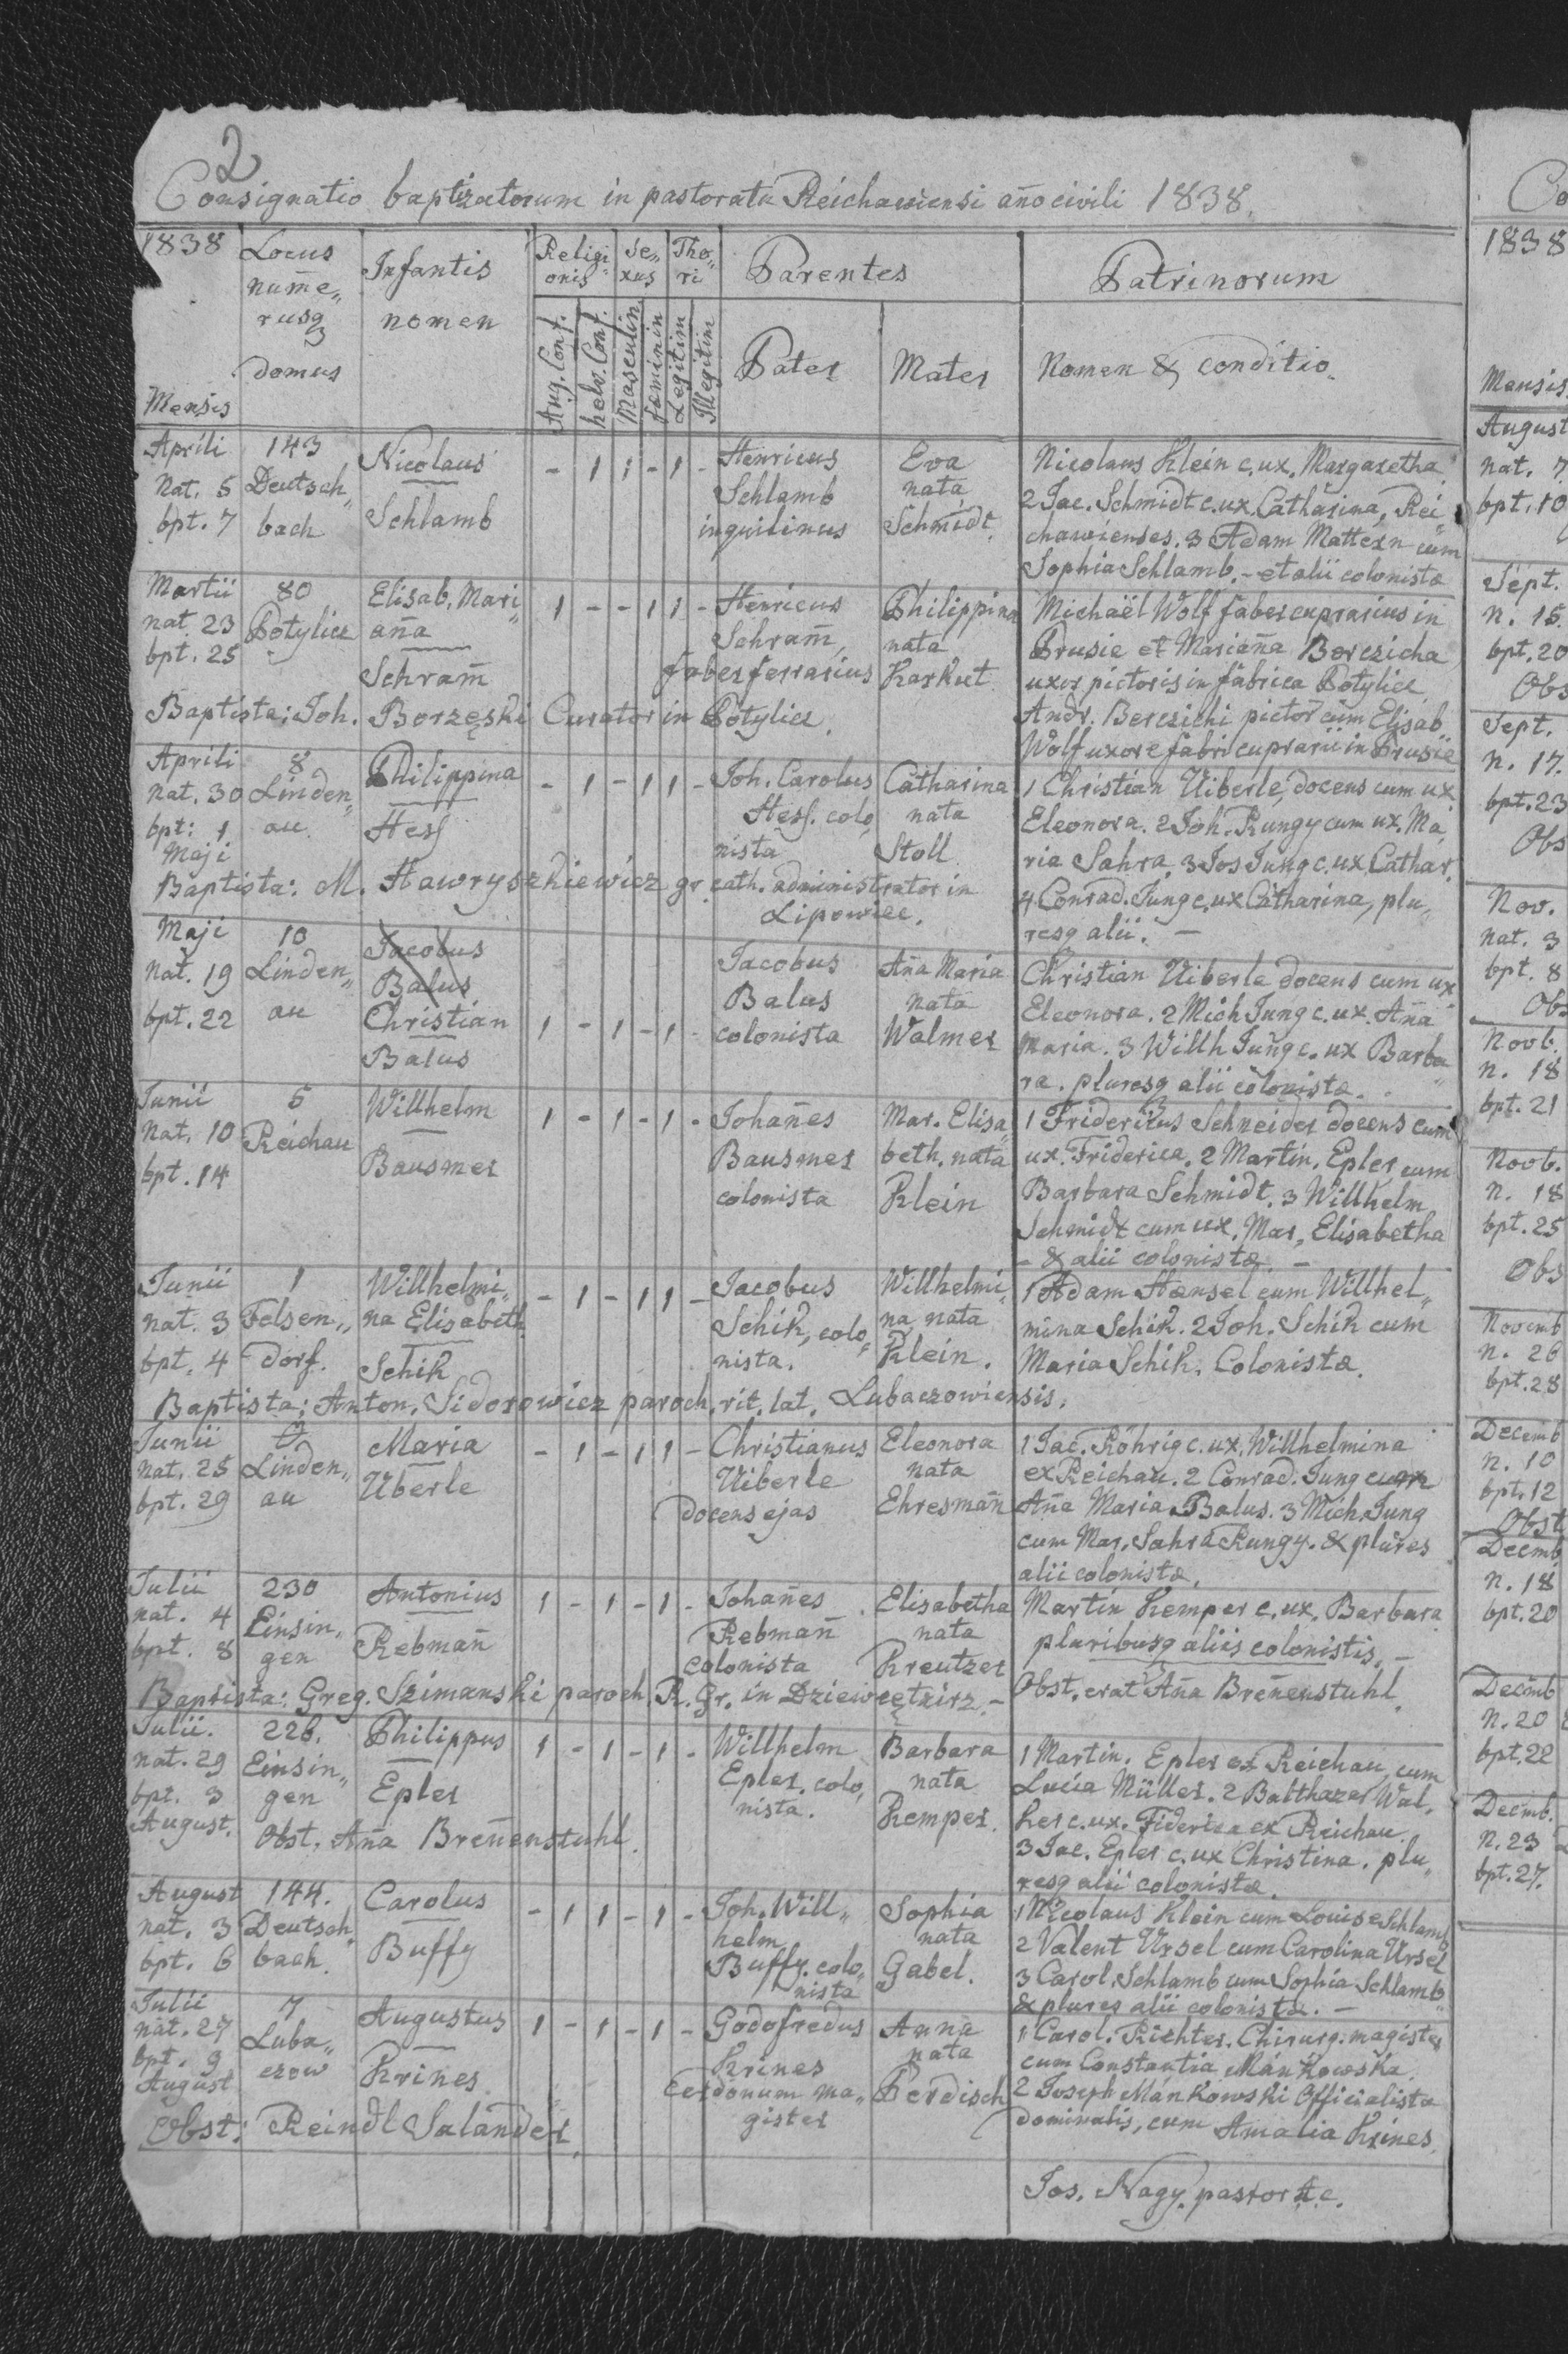 2
Consignatio baptizatorum in pastoratu Reichawiensi año civili 1838.
1838 Locus Infantis Religi- Se- Tho- Parentes Patrinorum
num̄e„ nomen onis xus ri
rusq
domus Aug. Conf. helv. Conf. Masculin fæminin Legitim Illegitim Pater Mater Nomen & conditio.
Mensis
Aprili 143 Nicolaus - 1 1 - 1 - Henricus Eva Nicolaus Klein c. ux. Margaretha
Nat. 5 Deutsch„ Schlamb Schlamb nata 2 Jac. Schmidt c. ux. Catharina, Rei„
bpt. 7 bach inquilinus Schmidt. chawienses. 3 Adam Mattern cum
Sophia Schlamb. - et alii colonistæ
Martii 80 Elisab. Mari„ 1 - - 1 1 - Henricus Philippina Michaël Wolf faber cuprarius in
nat. 23 Potylicz aña Schram̄, nata Prusie et Mariaña Berczicha
bpt. 25 Schram̄ faber ferrarius Karkut uxor pictoris in fabrica Potylicz
Baptista: Joh. Borzęski Curator in Potylicz. Andr. Berczichi pictor cum Elisab
Wolf uxore fabri cuprarii in Prusie
Aprili 8 Philippina - 1 - 1 1 - Joh. Carolus Catharina 1 Christian Uiberle, docens cum ux.
nat. 30 Linden„ Hess Hess. colo„ nata Eleonora. 2 Joh. Rungy cum ux. Ma„
bpt: 1 au. nista Stoll ria Sahra, 3 Jos Jung c. ux. Cathar.
Maji
Baptista: M. Hawryszkiewicz gr. cath. administrator in 4 Conrad. Jung c. ux Catharina, plu„
Lipowiec. resq alii. -
Maji 10 Jacobus Jacobus Aña Maria Christian Uiberle docens cum ux
Nat. 19 Linden„ Balus Balus nata Eleonora. 2 Mich Jung c. ux. Aña
bpt. 22 au Christian 1 - 1 - 1 - colonista Walmer Maria. 3 Willh Jung c. ux Barba„
Balus ra. pluresq alii colonistæ.
Junii 5 Willhelm 1 - 1 - 1 - Johañes Mar. Elisa„ 1 Friderikus Schneider docens cum
Nat. 10 Reichau Bausmer Bausmer beth. nata ux. Friderica. 2 Martin. Epler cum
bpt. 14 colonista Klein Barbara Schmidt. 3 Willhelm
Schmidt cum ux. Mar. Elisabetha
- & alii colonistæ. -
Junii 1 Willhelmi„ - 1 - 1 1 - Jacobus Willhelmi„ 1 Adam Hænsel cum Willhel„
nat. 3 Felsen„ na Elisabeth Schik, colo„ na nata mina Schik. 2 Joh. Schik cum
bpt. 4 dorf. Schik nista. Klein. Maria Schik. Colonistæ.
Baptista: Anton. Sidorowicz paroch. rit. lat. Lubaczowiensis.
Junii Maria - 1 - 1 1 - Christianus Eleonora 1 Jac. Röhrig c. ux. Willhelmina
nat. 25 Linden„ Uberle Uiberle nata ex Reichau. 2 Conrad. Jung cum
bpt. 29 au docens ejas Ehresmañ Aña Maria Balus. 3 Mich. Jung
cum Mar. Sahra Rungy. & plures
alii colonistæ.
Julii 230 Antonius 1 - 1 - 1 - Johañes Elisabetha Martin Kemper c. ux. Barbara
nat. 4 Einsin„ Rebmañ Rebmañ nata pluribusq aliis colonistis. -
bpt. 8 gen colonista Kreutzer
Baptista: Greg. Szimanski paroch. R. Gr. in Dziewcętnirz. - Obst. erat Aña Breñenstuhl.
Julii. 226. Philippus 1 - 1 - 1 - Willhelm Barbara 1 Martin. Epler ex Reichau, cum
nat. 29 Einsin„ Epler Epler. colo„ nata Lucia Müller. 2 Balthazer Wal„
bpt. 3 gen nista. Kemper. ker c. ux. Fiderica ex Reichau.
August. Obst. Aña Breñenstuhl. 3 Jac. Epler c. ux Christina. plu„
resq alii colonistæ.
August 144. Carolus - 1 1 - 1 - Joh. Will„ Sophia 1 Nicolaus Klein cum Louise Schlamb
nat. 3 Deutsch„ Buffy helm nata 2 Valent Ursel cum Carolina Ursel
bpt. 6 bach. Buffy. colo„ Gabel. 3 Carol. Schlamb cum Sophia Schlamb
nista & plures alii colonistæ. -
Julii 7 Augustus 1 - 1 - 1 - Godofredus Anna 1 Carol. Richter. Chirurg. magister
nat. 27 Luba„ Krines Krines nata cum Constantia Mánkowska.
bpt. 9 czow cerdonum ma„ Perdisch 2 Joseph Mánkowski Officialista
August gister dominalis, cum Amalia Krines.
Obst: Reindl Salander.
Jos. Nagy. pastor h.c.
Co
1838
Mensis
August
nat. 7
bpt. 10
Sept.
n. 15
bpt. 20
Obs
Sept.
n. 17.
bpt. 23
Obs
Nov.
nat. 3
bpt. 8
Obs
Novb.
n. 18
bpt. 21
Novb.
n. 18
bpt. 25
Obs
Novemb
n. 26
bpt. 28
Decemb
n. 10
bpt. 12
Obst
Decmb
n. 18
bpt. 20
Decmb
n. 20
bpt. 22
Decmb.
n. 23
bpt. 27.